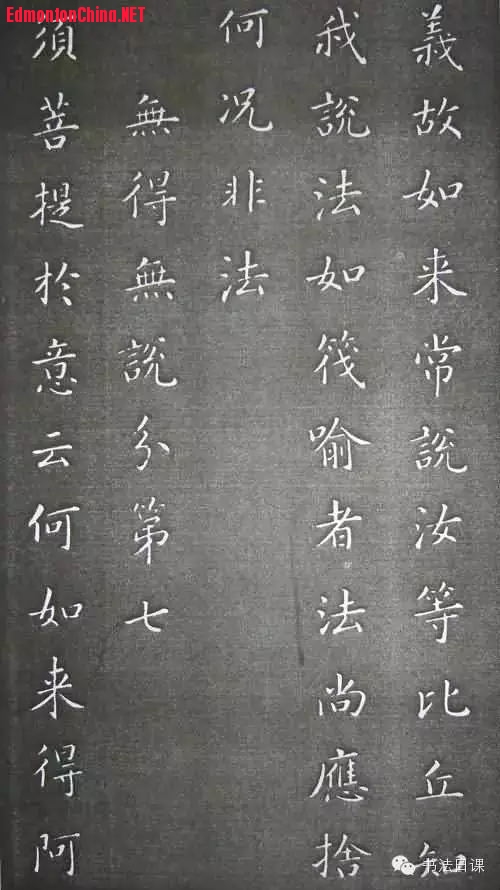 EdmontonChina.NET
義故如来常說汝等比丘知
我說法如筏喻者法尚應捨
何况非法
無得無說分第七
須菩提於意云何如来得阿
书法日课